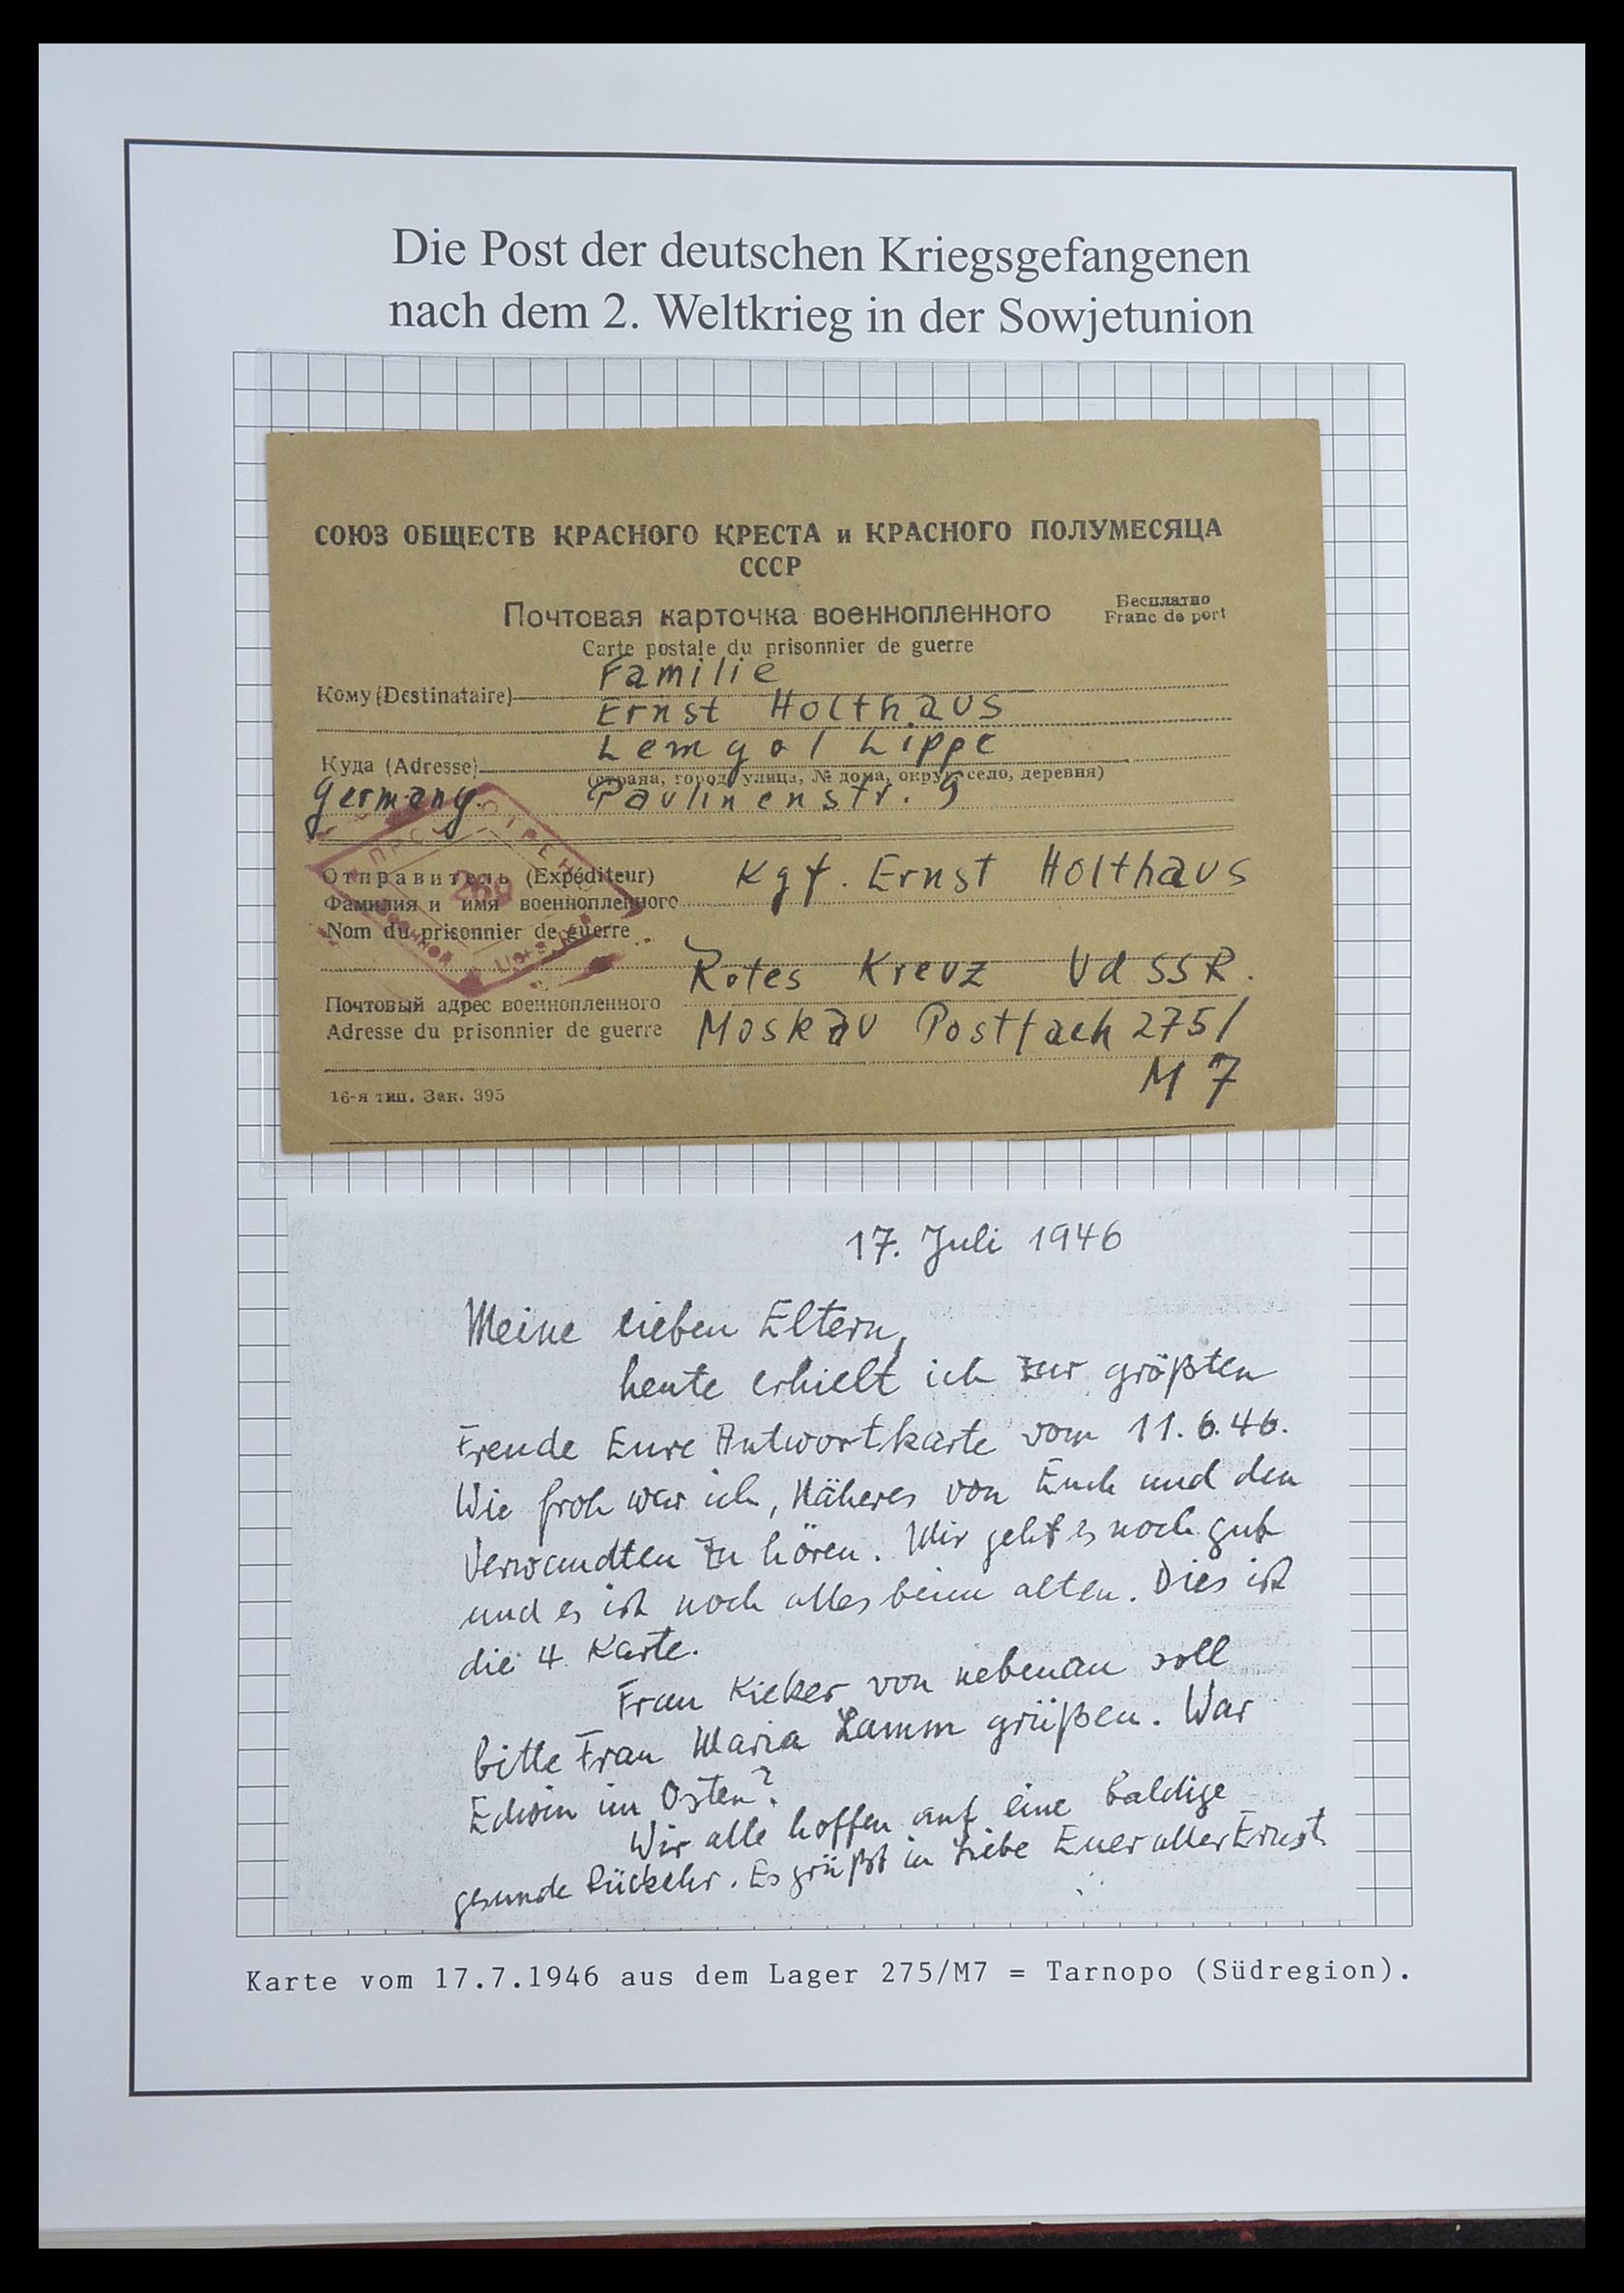 Die Post der deutschen Kriegsgefangenen
nach dem 2. Weltkrieg in der Sowjetunion
СОЮЗ ОБЩЕСТВ КРАСНОГО КРЕСТА и КРАСНОГО ПОЛУМЕСЯЦА
СССР
Почтовая карточка военнопленного
Бесплатно
Franc de port
Carte postale du prisonnier de guerre
Familie
Кому (Destinataire)
Ernst Holthaus
Lemgo / Lippe
Куда (Adresse)
(страна, город, улица, № дома, округ, село, деревня)
Germany. Paulinenstr. 9
269
Отправитель (Expéditeur)
Kgf. Ernst Holthaus
Фамилия и имя военнопленного
Nom du prisonnier de guerre
Rotes Kreuz UdSSR.
Почтовый адрес военнопленного
Adresse du prisonnier de guerre
Moskau Postfach 275/
M 7
16-я тип. Зак. 395
17. Juli 1946
Meine lieben Eltern,
heute erhielt ich zur größten
Freude Eure Antwortkarte vom 11.6.46.
Wie froh war ich, Näheres von Euch und den
Verwandten zu hören. Mir geht es noch gut
und es ist noch alles beim alten. Dies ist
die 4. Karte.
Frau Kieker von nebenan soll
bitte Frau Maria Lamm grüßen. War
Edwin im Osten?
Wir alle hoffen auf eine baldige
gesunde Rückkehr. Es grüßt in Liebe Euer aller Ernst
Karte vom 17.7.1946 aus dem Lager 275/M7 = Tarnopo (Südregion).